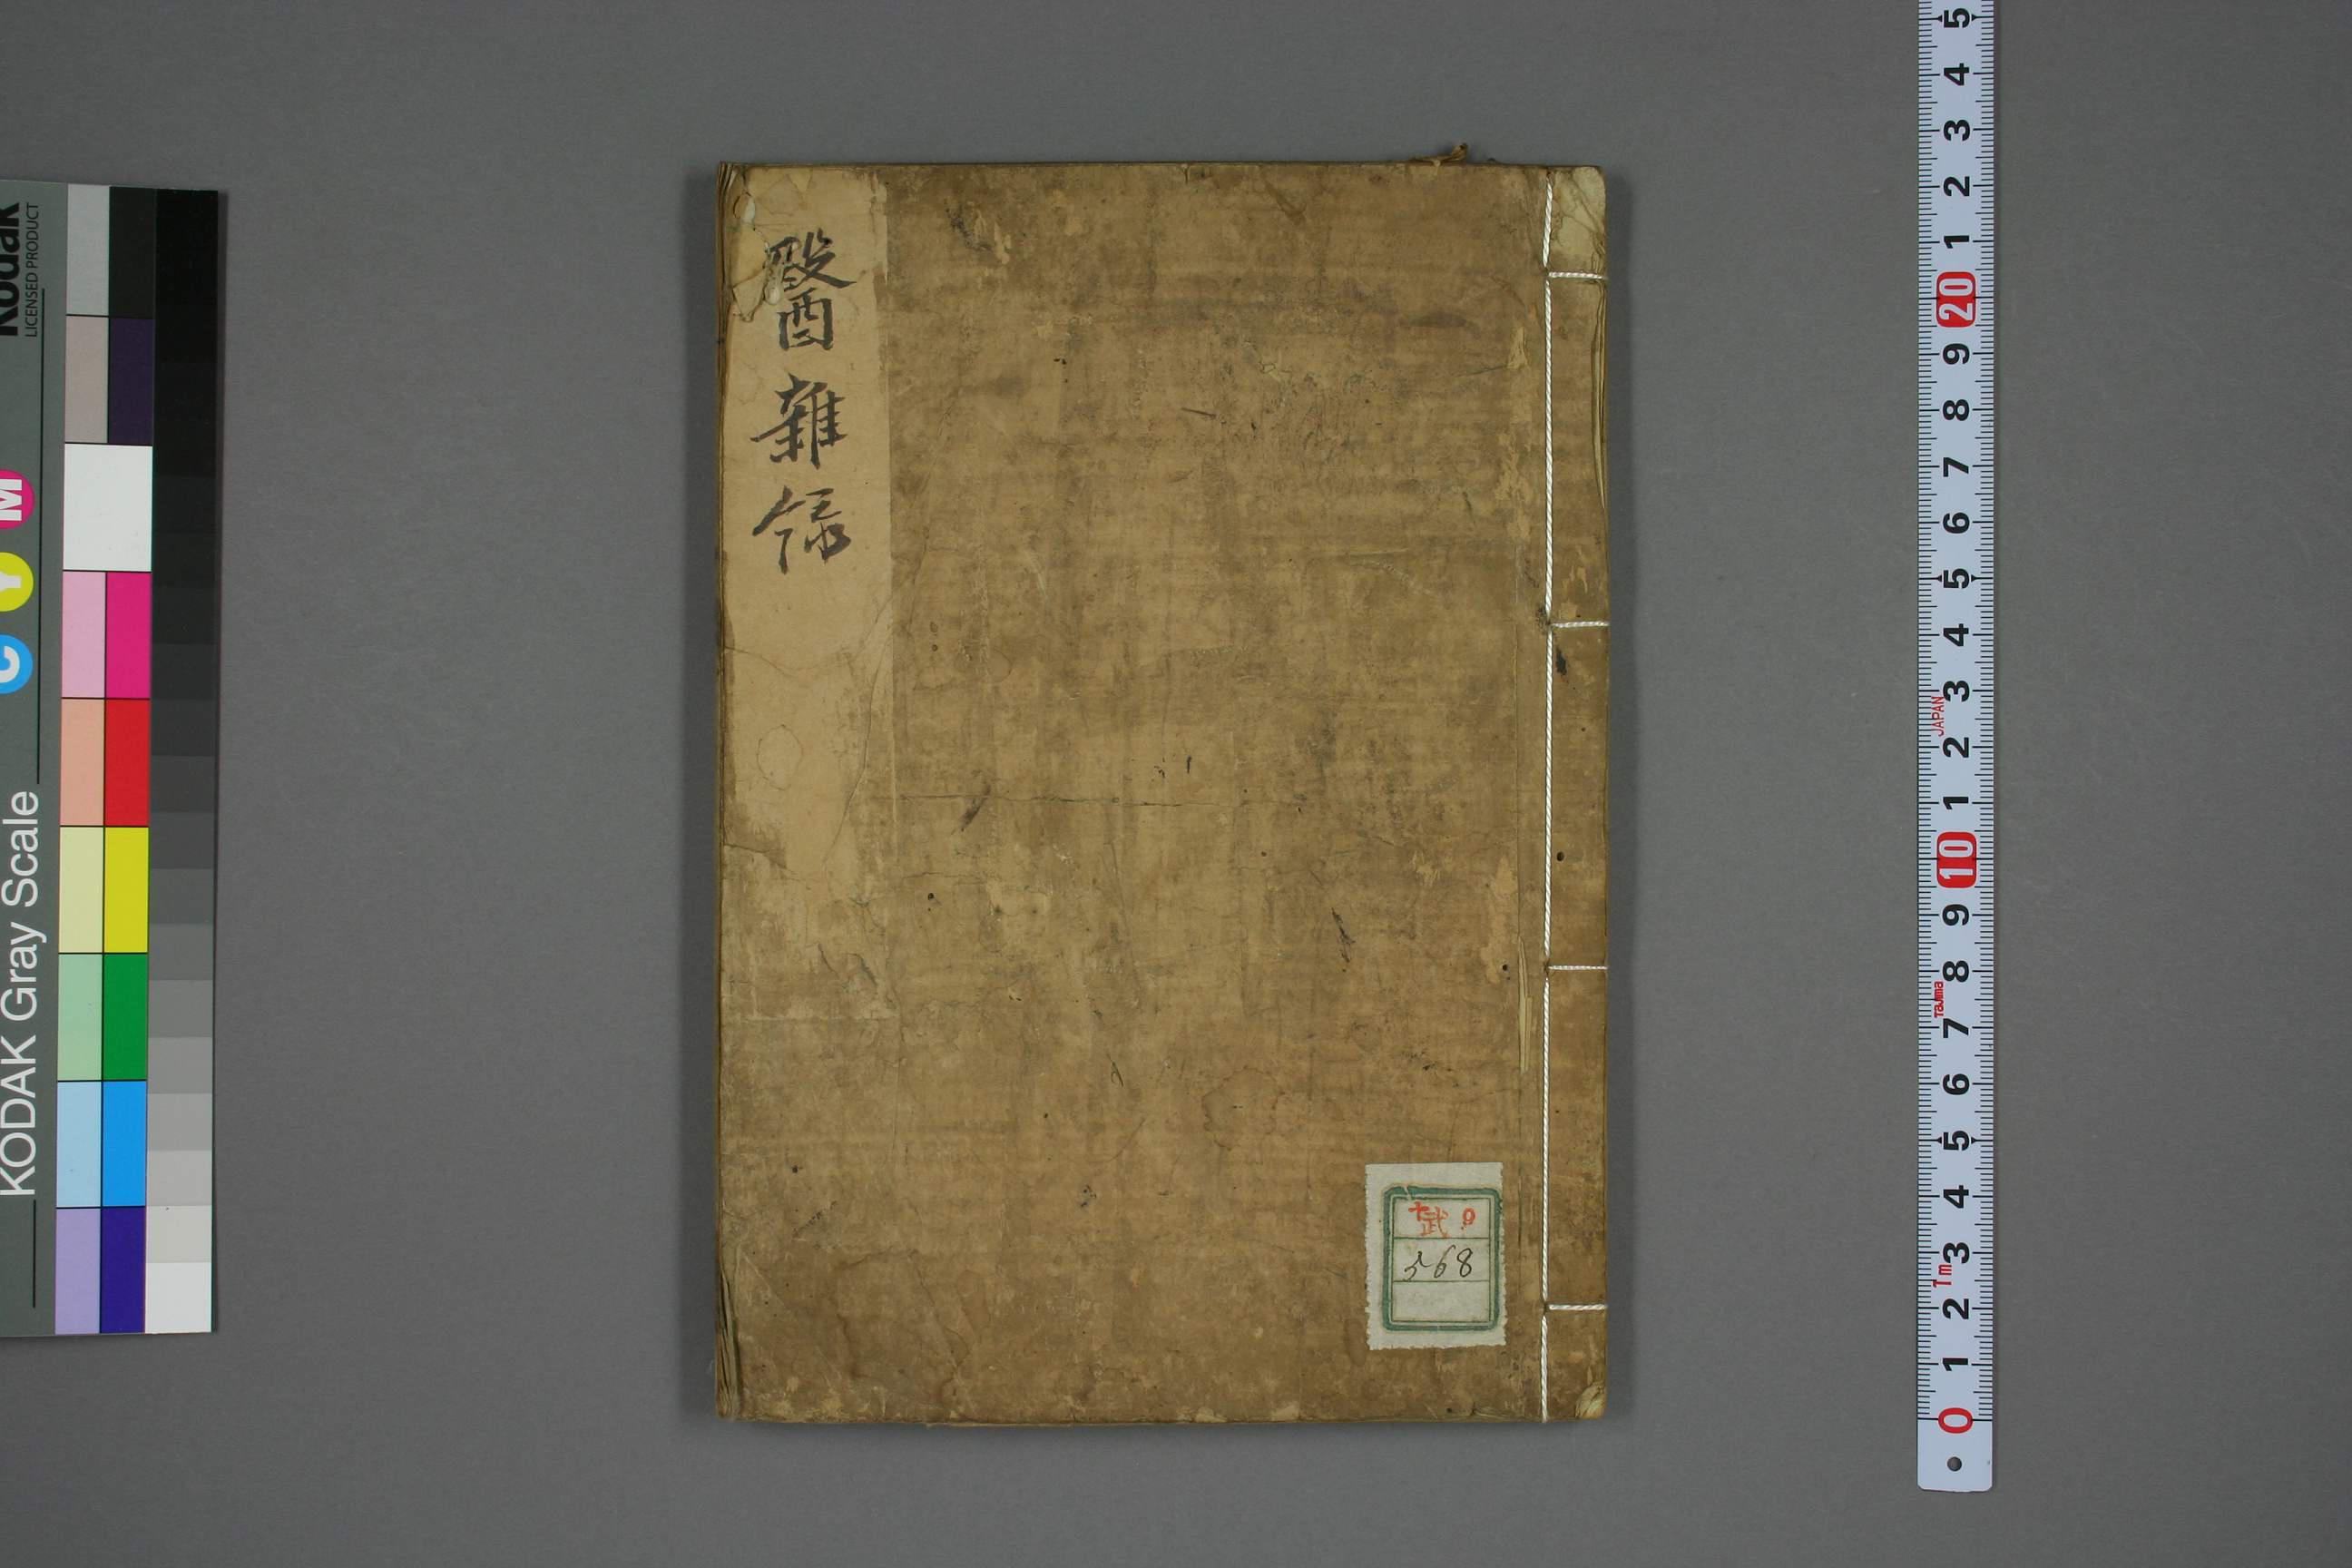 醫雜録
武
568
KODAK Gray Scale
Kodak
LICENSED PRODUCT
C Y M
5
4
3
2
1
20
9
8
7
6
5
4
3
JAPAN
2
1
10
9
8
Tajima
7
6
5
4
3
1m
2
1
0